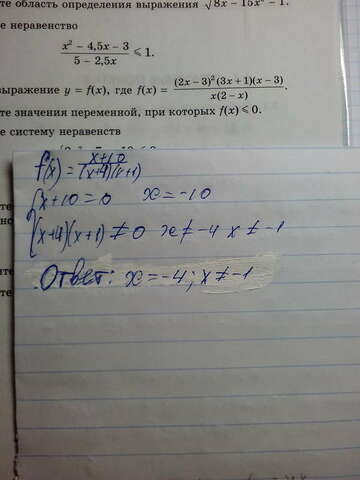 те область определения выражения √8x − 15x² − 1.
е неравенство
(x² − 4,5x − 3)/(5 − 2,5x) ⩽ 1.
выражение y = f(x), где f(x) = ((2x − 3)²(3x + 1)(x − 3))/(x(2 − x)).
те значения переменной, при которых f(x) ⩽ 0.
е систему неравенств
f(x) = (x+10)/((x+4)(x+1))
x+10=0 x=-10
(x+4)(x+1)≠0 x≠-4 x≠-1
Ответ: x=-4; x≠-1